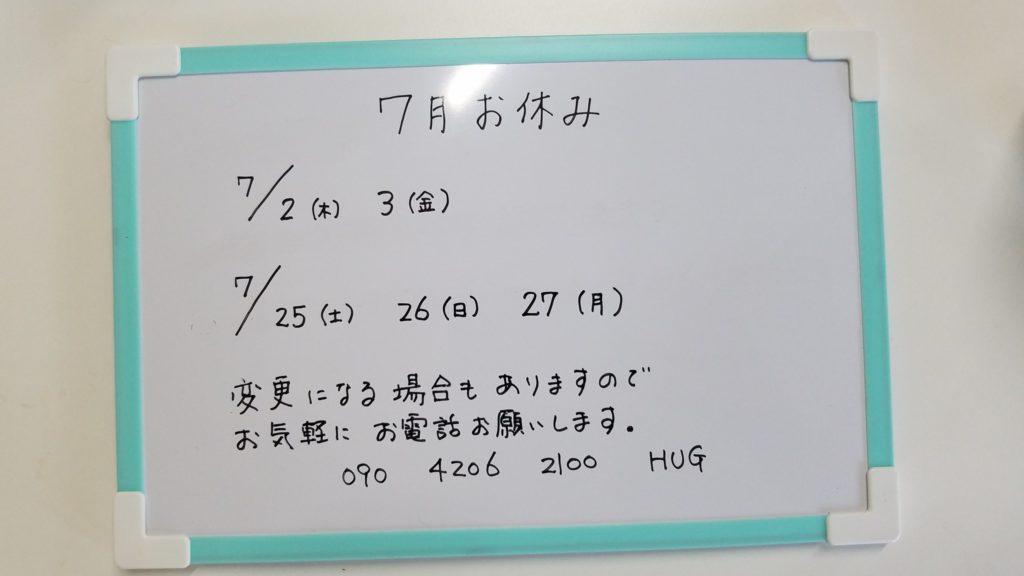 7月お休み
7/2(木) 3(金)
7/25(土) 26(日) 27(月)
変更になる場合もありますので
お気軽にお電話お願いします.
090 4206 2100 HUG